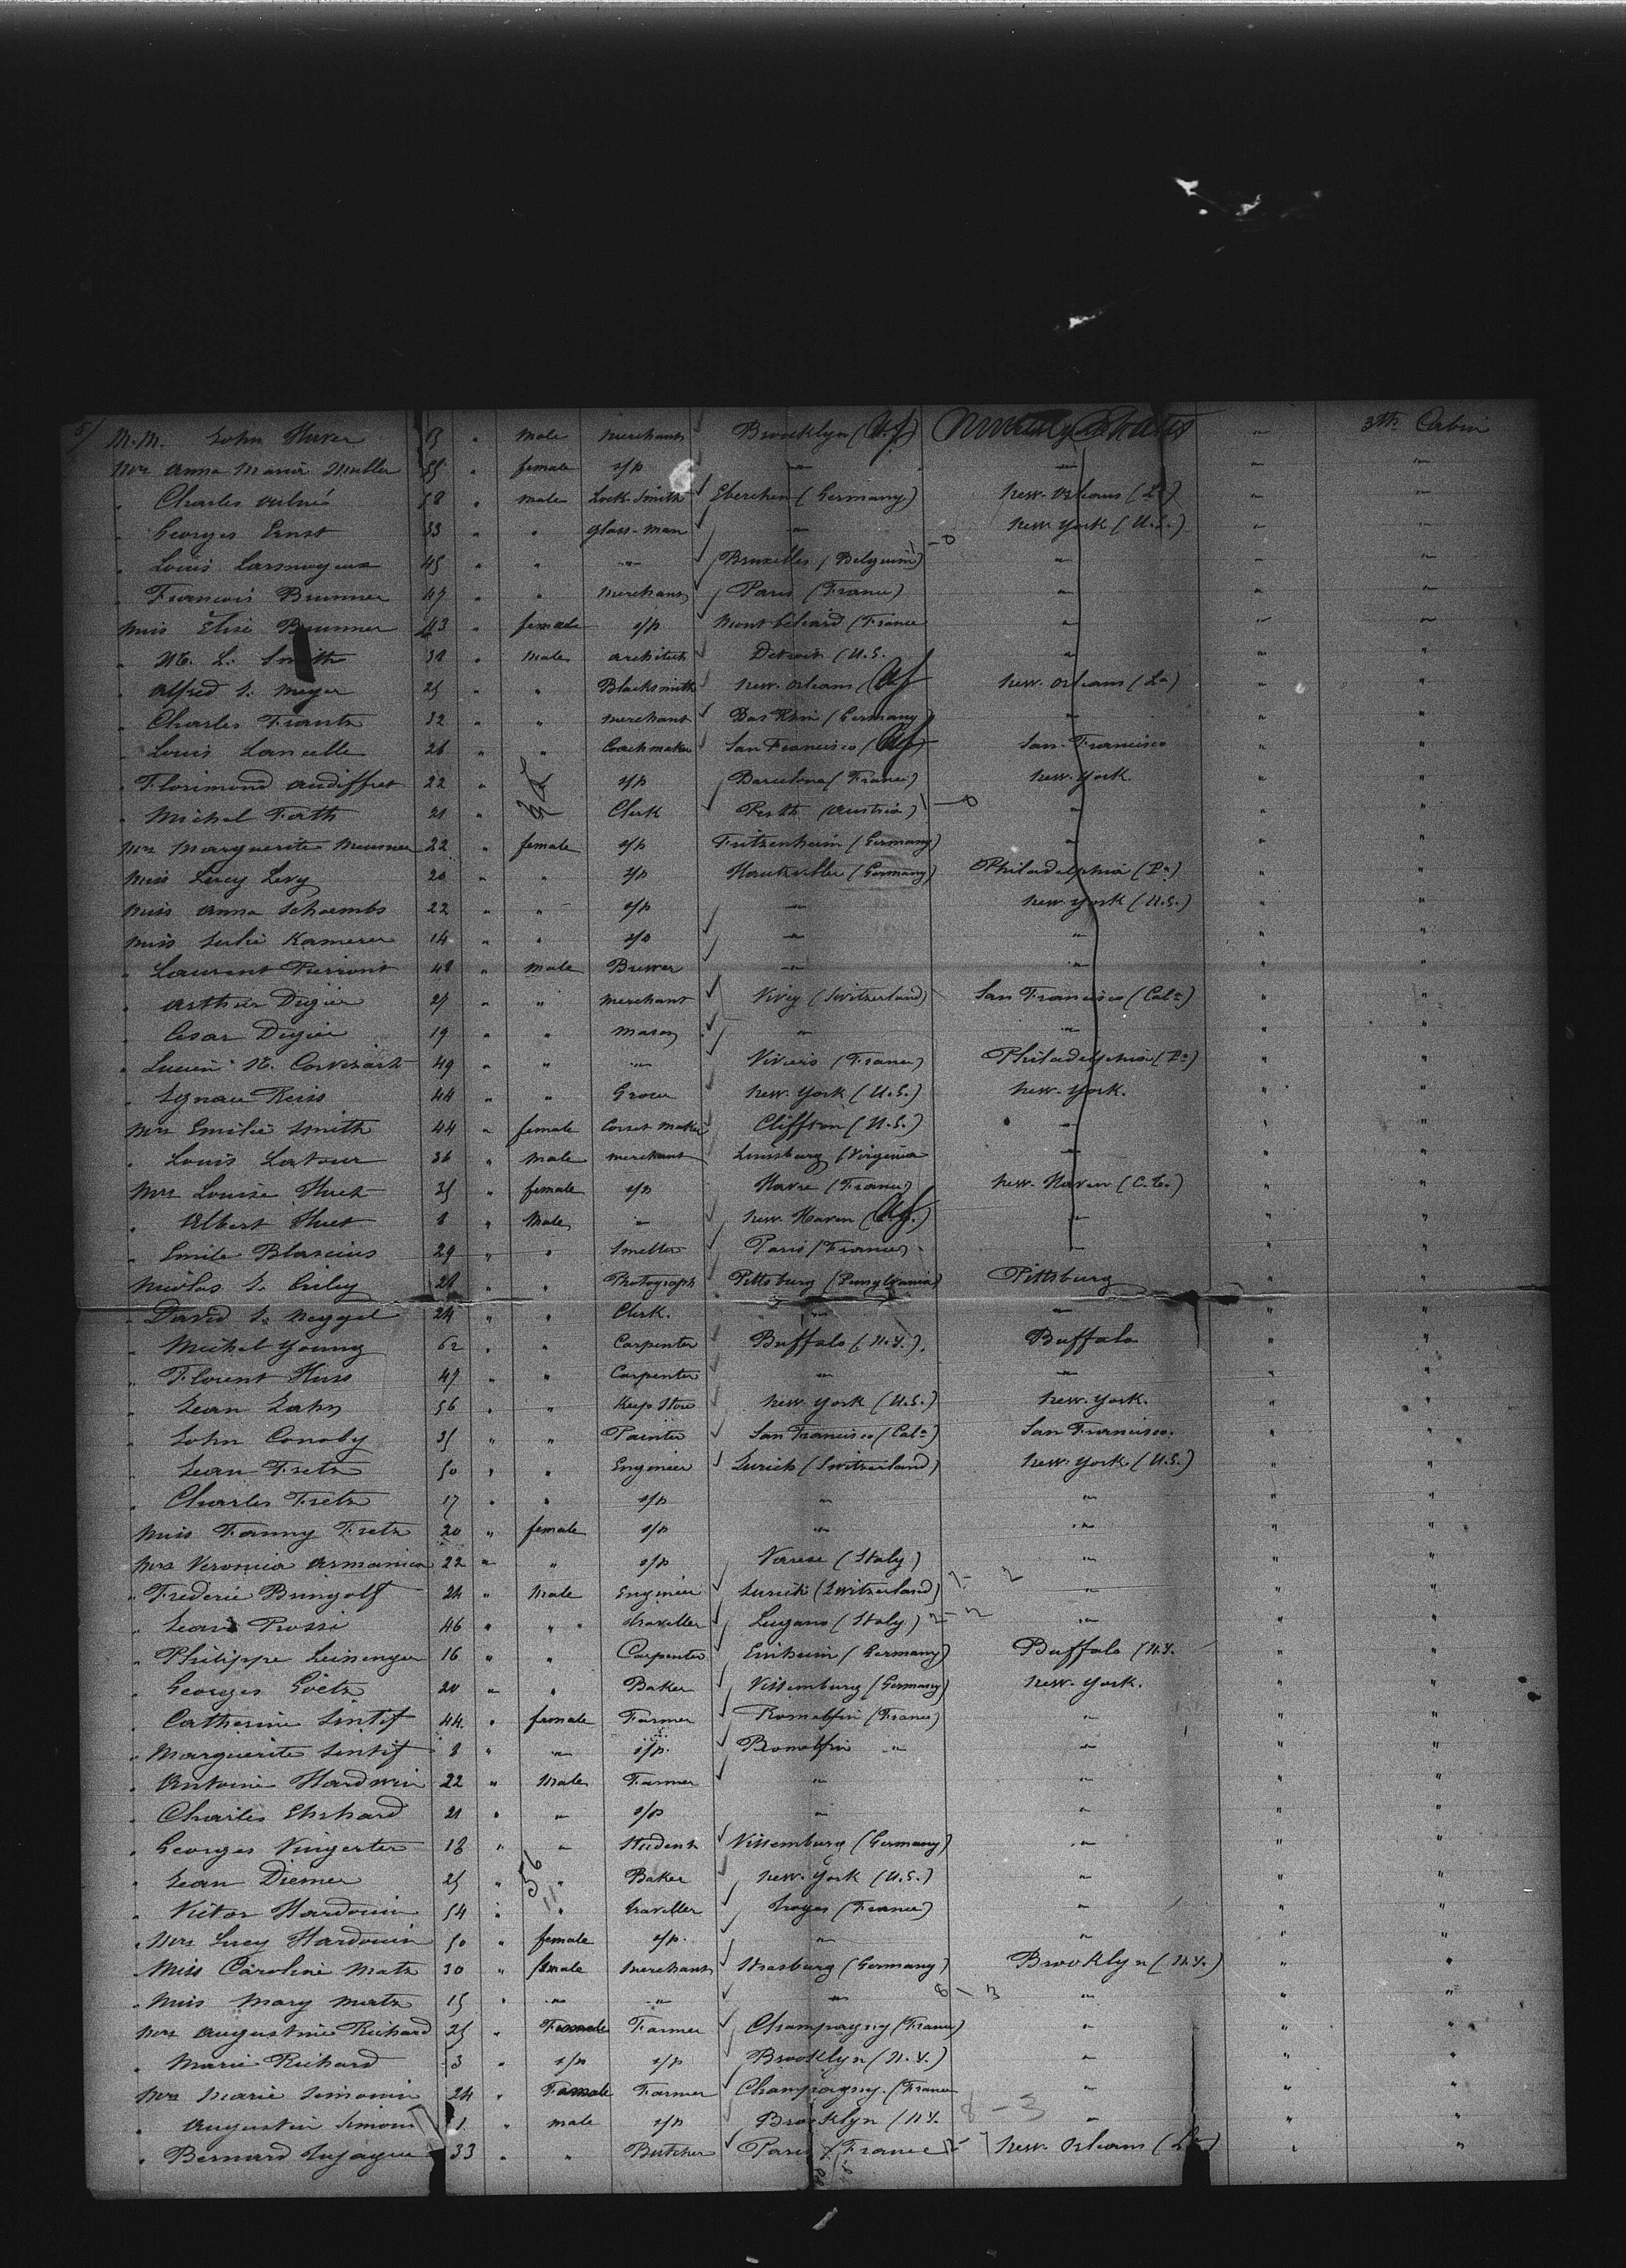 5/ M.M. John Huver " male merchant Brooklyn (U.S.) United States " 3th Cabin
Mrs Anna Maria Muller 55 " female s/p " " " "
" Charles Vulné 58 " male Lock-Smith (Germany) New-Orleans (La) " "
" Georges Ernst 33 " " glass-man " New York (U.S.) " "
" Louis 45 " " " Bruxelles (Belgium) " " "
" François Brunner 47 " " merchant Paris (France) " " "
Miss Elise Brunner 43 " female s/p Montbeliard (France " " "
" L. Smith " male architect Detroit (U.S. " " "
" Alfred S. Meyer 25 " " Blacksmith New-Orleans (US New-Orleans (La) " "
" Charles Frantz 32 " " merchant Bas Rhin (Germany " " "
" Louis Lancelle 26 " " Coach maker San Francisco (US) San-Francisco " "
" Florimond Audiffret 22 " s/p Barcelona (France) New-York. " "
" Michel Foth 21 " Clerk Pesth (Austria) " " "
Mrs Marguerite Meusner 22 " female s/p Fritzenheim (Germany) " " "
Miss Lucy Levy 20 " " s/p (Germany) Philadelphia (Pa) " "
Miss Anna Schoembs 22 " " s/p " New York (U.S.) " "
Miss Julie Kamerer 14 " " s/p " " " "
" Laurent Pierront 48 " male Brewer " " " "
" Arthur Dizier 27 " " merchant Vivey (Switzerland) San Francisco (Cala) " "
" Cesar Dizier 19 " " mason " " " "
" Lucien H. Corvisart 49 " " " Viviers (France) Philadelphia (Pa) " "
" Ignace Reiss 44 " " Grocer New-York (U.S.) New-York. " "
Mrs Emilie Smith 44 " female Corset maker Cliffton (U.S.) " " "
" Louis Latour 36 " male merchant (Virginia " " "
Mrs Louise Huet 35 " female s/p Havre (France) New-Haven (C.T.) " "
" Albert Huet 8 " Male " New Haven (US.) " " "
" Emile Blascius 29 " " Smelter Paris (France) " " "
Nicolas S. " " Photograph Pittsburg (Pensylvania) Pittsburg " "
" David S. Neggel 24 " " Clerk. " " " "
" Michel Young 62 " " Carpenter Buffalo (N.Y.). Buffalo " "
" Florent Huss 47 " " Carpenter " " " "
" Jean Jahn 56 " " Keep Store New York (U.S.) New-York. " "
" John Conoby 35 " " Painter San Francisco (Cala) San Francisco. " "
" Jean Fretz 50 " " Engineer Zurich (Switzerland) New-York (U.S.) " "
" Charles Fretz 17 " " s/p " " " "
Miss Fanny Fretz 20 " female s/p " " " "
Mrs Veronica Armanica 22 " " s/p Varese (Italy) " " "
" Frederic Bringolf 24 " Male Engineer Zurich (Switzerland) " " "
" Jean Rossi 46 " " traveller Lugano (Italy) " " "
" Philippe Leininger 16 " " Carpenter (Germany) Buffalo (N.Y. " "
" Georges Goetz 20 " " Baker Vissemburg (Germany) New-York. " "
" Catherine Sintif 44 " female Farmer (France) " " "
" Marguerite Sintif 8 " " s/p. " " " "
" Antoine Hardwin 22 " Male Farmer " " " "
" Charles Ehrhard 21 " " s/p " " " "
" Georges Vingerter 18 " " Student Vissemburg (Germany) " " "
" Jean Diemer 25 " " Baker New-York (U.S.) " " "
" Victor Hardouin 54 " " traveller Troyes (France) " " "
" Mrs Lucy Hardouin 50 " female s/p. " " " "
" Miss Caroline Matz 30 " female Merchant Strasburg (Germany) Brooklyn (N.Y.) " "
" Miss Mary Matz 15 " " " " 8-3 " " "
Mrs Augustine Richard 25 " Female Farmer Champagny (France) " " "
" Marie Richard 3 " s/p s/p Brooklyn (N.Y.) " " "
Mrs Marie Simonin 24 " Female Farmer Champagny. (France " " "
" Augustin Simoni 1. " male s/p Brooklyn (N.Y. 8-3 " " "
" Bernard 33 " " Butcher Paris (France) New-Orleans (La) " "